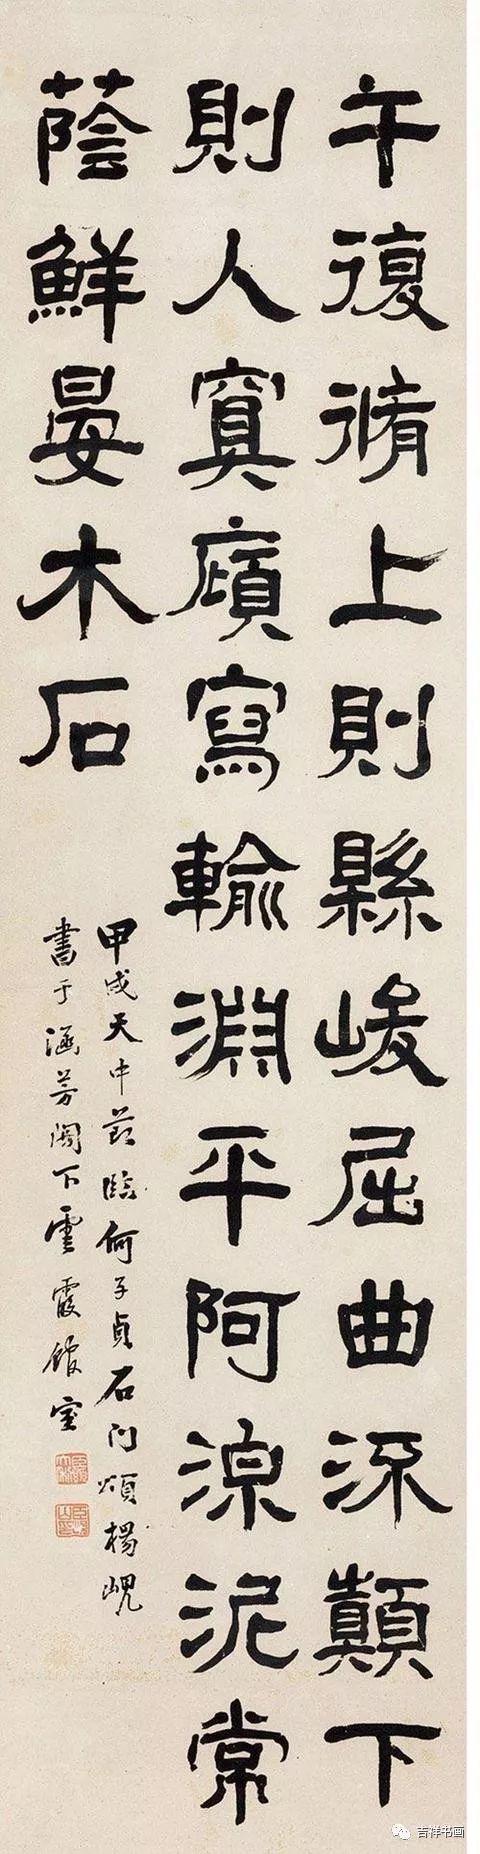 午復循上則縣峻屈曲流顛下
則入冥廎寫輸淵平阿淖泥常
蔭鮮晏木石
甲戌天中節臨何子貞石門頌楊峴
書于涵芳閣下雲霞館室
吉祥书画